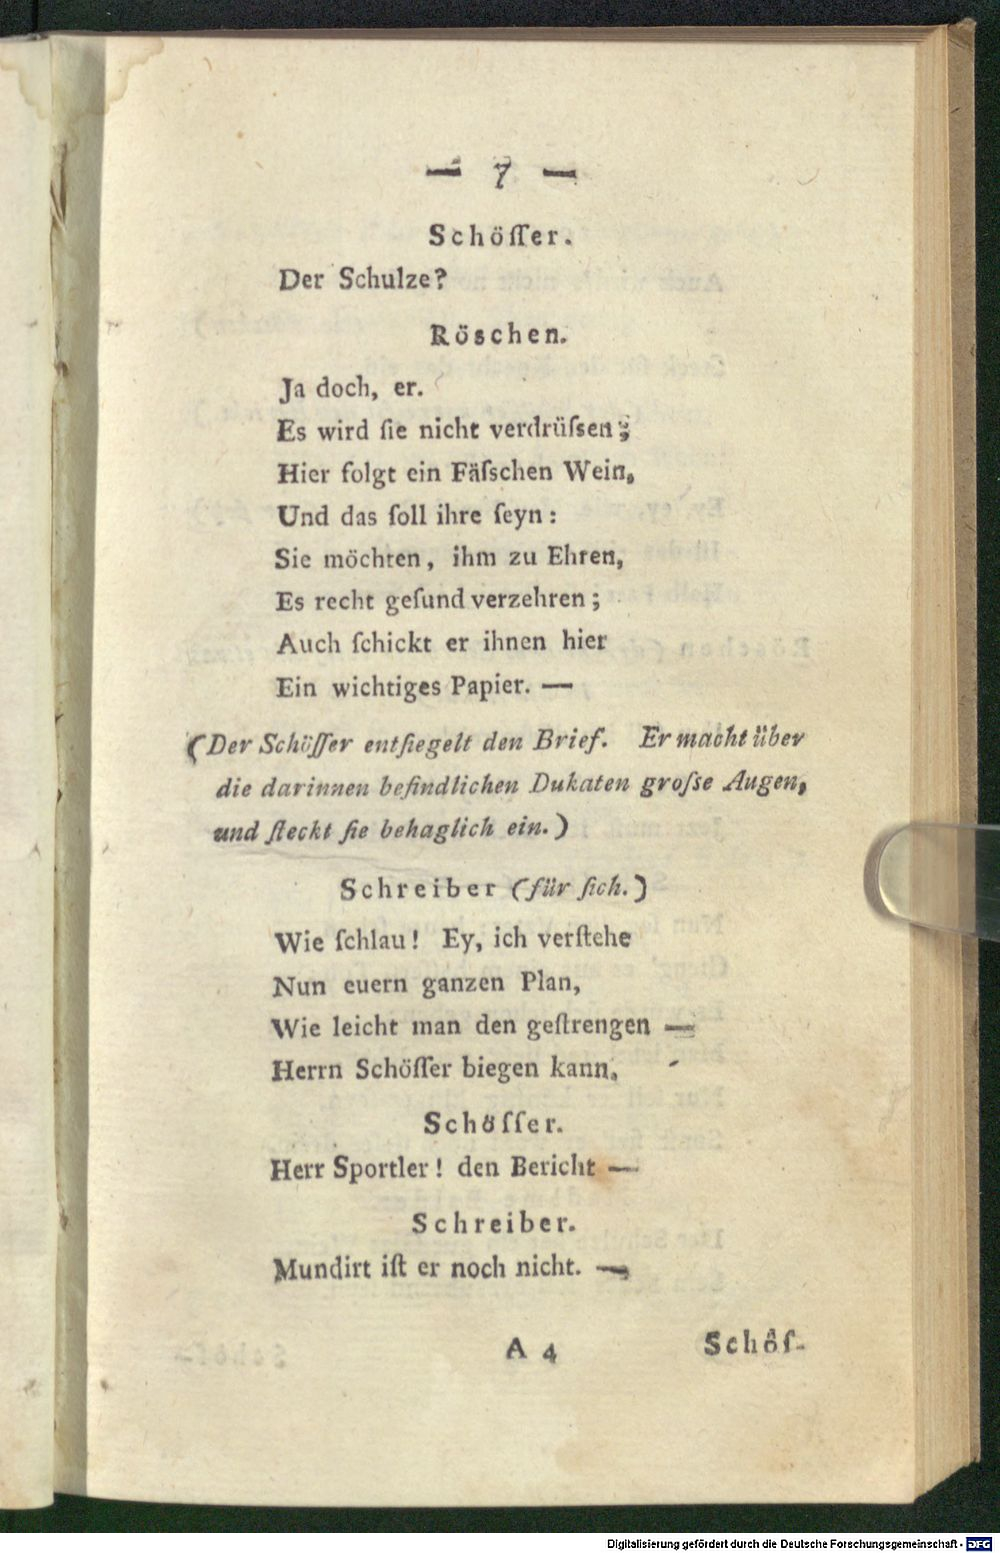 — 7 —
Schöſſer.
Der Schulze?
Röschen.
Ja doch, er.
Es wird ſie nicht verdrüſsen;
Hier folgt ein Fäſschen Wein,
Und das ſoll ihre ſeyn:
Sie möchten, ihm zu Ehren,
Es recht geſund verzehren;
Auch ſchickt er ihnen hier
Ein wichtiges Papier. —
(Der Schöſſer entſiegelt den Brief. Er macht über
die darinnen befindlichen Dukaten groſse Augen,
und ſteckt ſie behaglich ein.)
Schreiber (für ſich.)
Wie ſchlau! Ey, ich verſtehe
Nun euern ganzen Plan,
Wie leicht man den geſtrengen —
Herrn Schöſſer biegen kann.
Schöſſer.
Herr Sportler! den Bericht —
Schreiber.
Mundirt iſt er noch nicht. —
A 4 Schöſ-
Digitalisierung gefördert durch die Deutsche Forschungsgemeinschaft - DFG